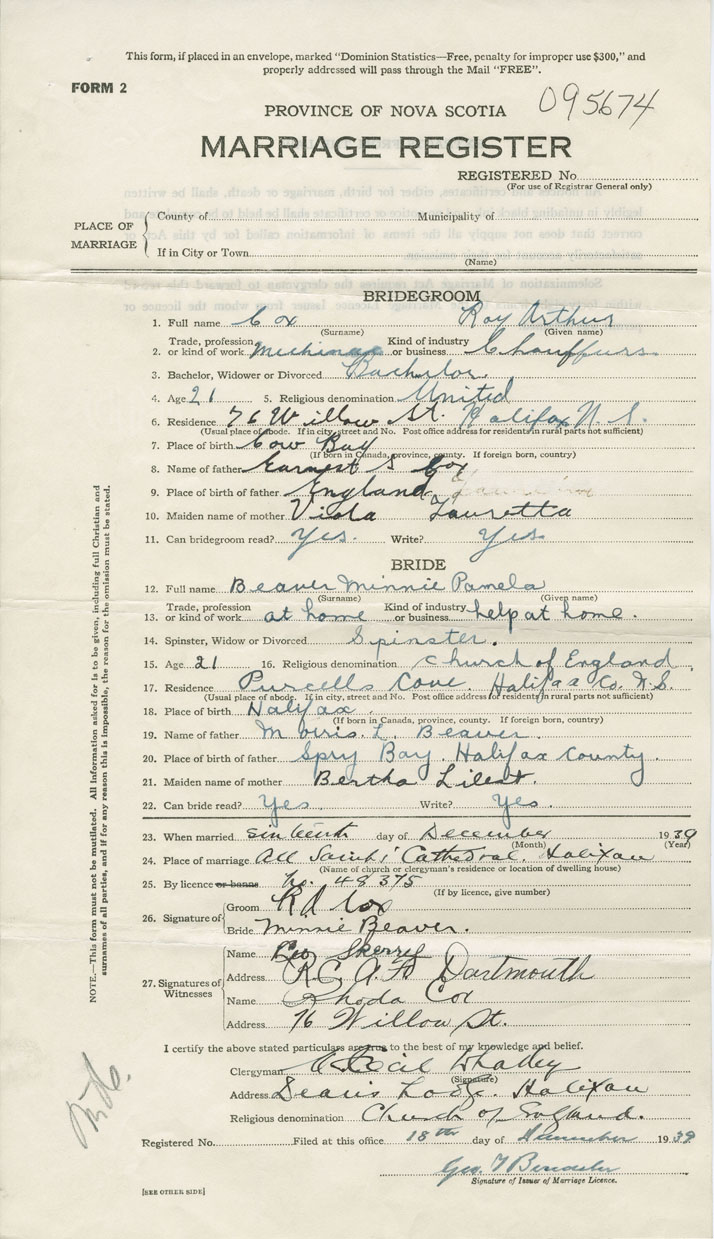 This form, if placed in an envelope, marked "Dominion Statistics—Free, penalty for improper use $300," and
properly addressed will pass through the Mail "FREE".
FORM 2
095674
PROVINCE OF NOVA SCOTIA
MARRIAGE REGISTER
REGISTERED No.
(For use of Registrar General only)
PLACE OF MARRIAGE
County of Municipality of
If in City or Town
(Name)
BRIDEGROOM
1. Full name Cox Roy Arthur
(Surname) (Given name)
Trade, profession Kind of industry
2. or kind of work or business Chauffurs
3. Bachelor, Widower or Divorced Bachelor.
4. Age 21 5. Religious denomination United
6. Residence 76 Willow St. Halifax N.S.
(Usual place of abode. If in city, street and No. Post office address for residents in rural parts not sufficient)
7. Place of birth Cow Bay
(If born in Canada, province, county. If foreign born, country)
8. Name of father Earnest S Cox
9. Place of birth of father England
10. Maiden name of mother Viola Lauretta
11. Can bridegroom read? Yes. Write? Yes
BRIDE
12. Full name Beaver Minnie Pamela
(Surname) (Given name)
Trade, profession Kind of industry
13. or kind of work at home or business help at home.
14. Spinster, Widow or Divorced Spinster.
15. Age 21 16. Religious denomination Church of England
17. Residence Purcells Cove. Halifax Co. N.S.
(Usual place of abode. If in city, street and No. Post office address for residents in rural parts not sufficient)
18. Place of birth Halifax
(If born in Canada, province, county. If foreign born, country)
19. Name of father Morris. L. Beaver
20. Place of birth of father Spry Bay. Halifax County
21. Maiden name of mother Bertha
22. Can bride read? Yes Write? Yes.
23. When married sixteenth day of December 1939
(Month) (Year)
24. Place of marriage All Saints' Cathedral. Halifax
(Name of church or clergyman's residence or location of dwelling house)
25. By licence or banns No. 48375
(If by licence, give number)
26. Signature of
Groom R A Cox
Bride Minnie Beaver.
27. Signatures of Witnesses
Name
Address R C A F Dartmouth
Name Rhoda Cox
Address 76 Willow St.
I certify the above stated particulars are true to the best of my knowledge and belief.
Clergyman Cecil Whalley
(Signature)
Address Halifax
Religious denomination Church of England.
Registered No. Filed at this office 18th day of December 1939
Signature of Issuer of Marriage Licence.
[SEE OTHER SIDE]
NOTE.—This form must not be mutilated. All information asked for is to be given, including full Christian and
surnames of all parties, and if for any reason this is impossible, the reason for the omission must be stated.